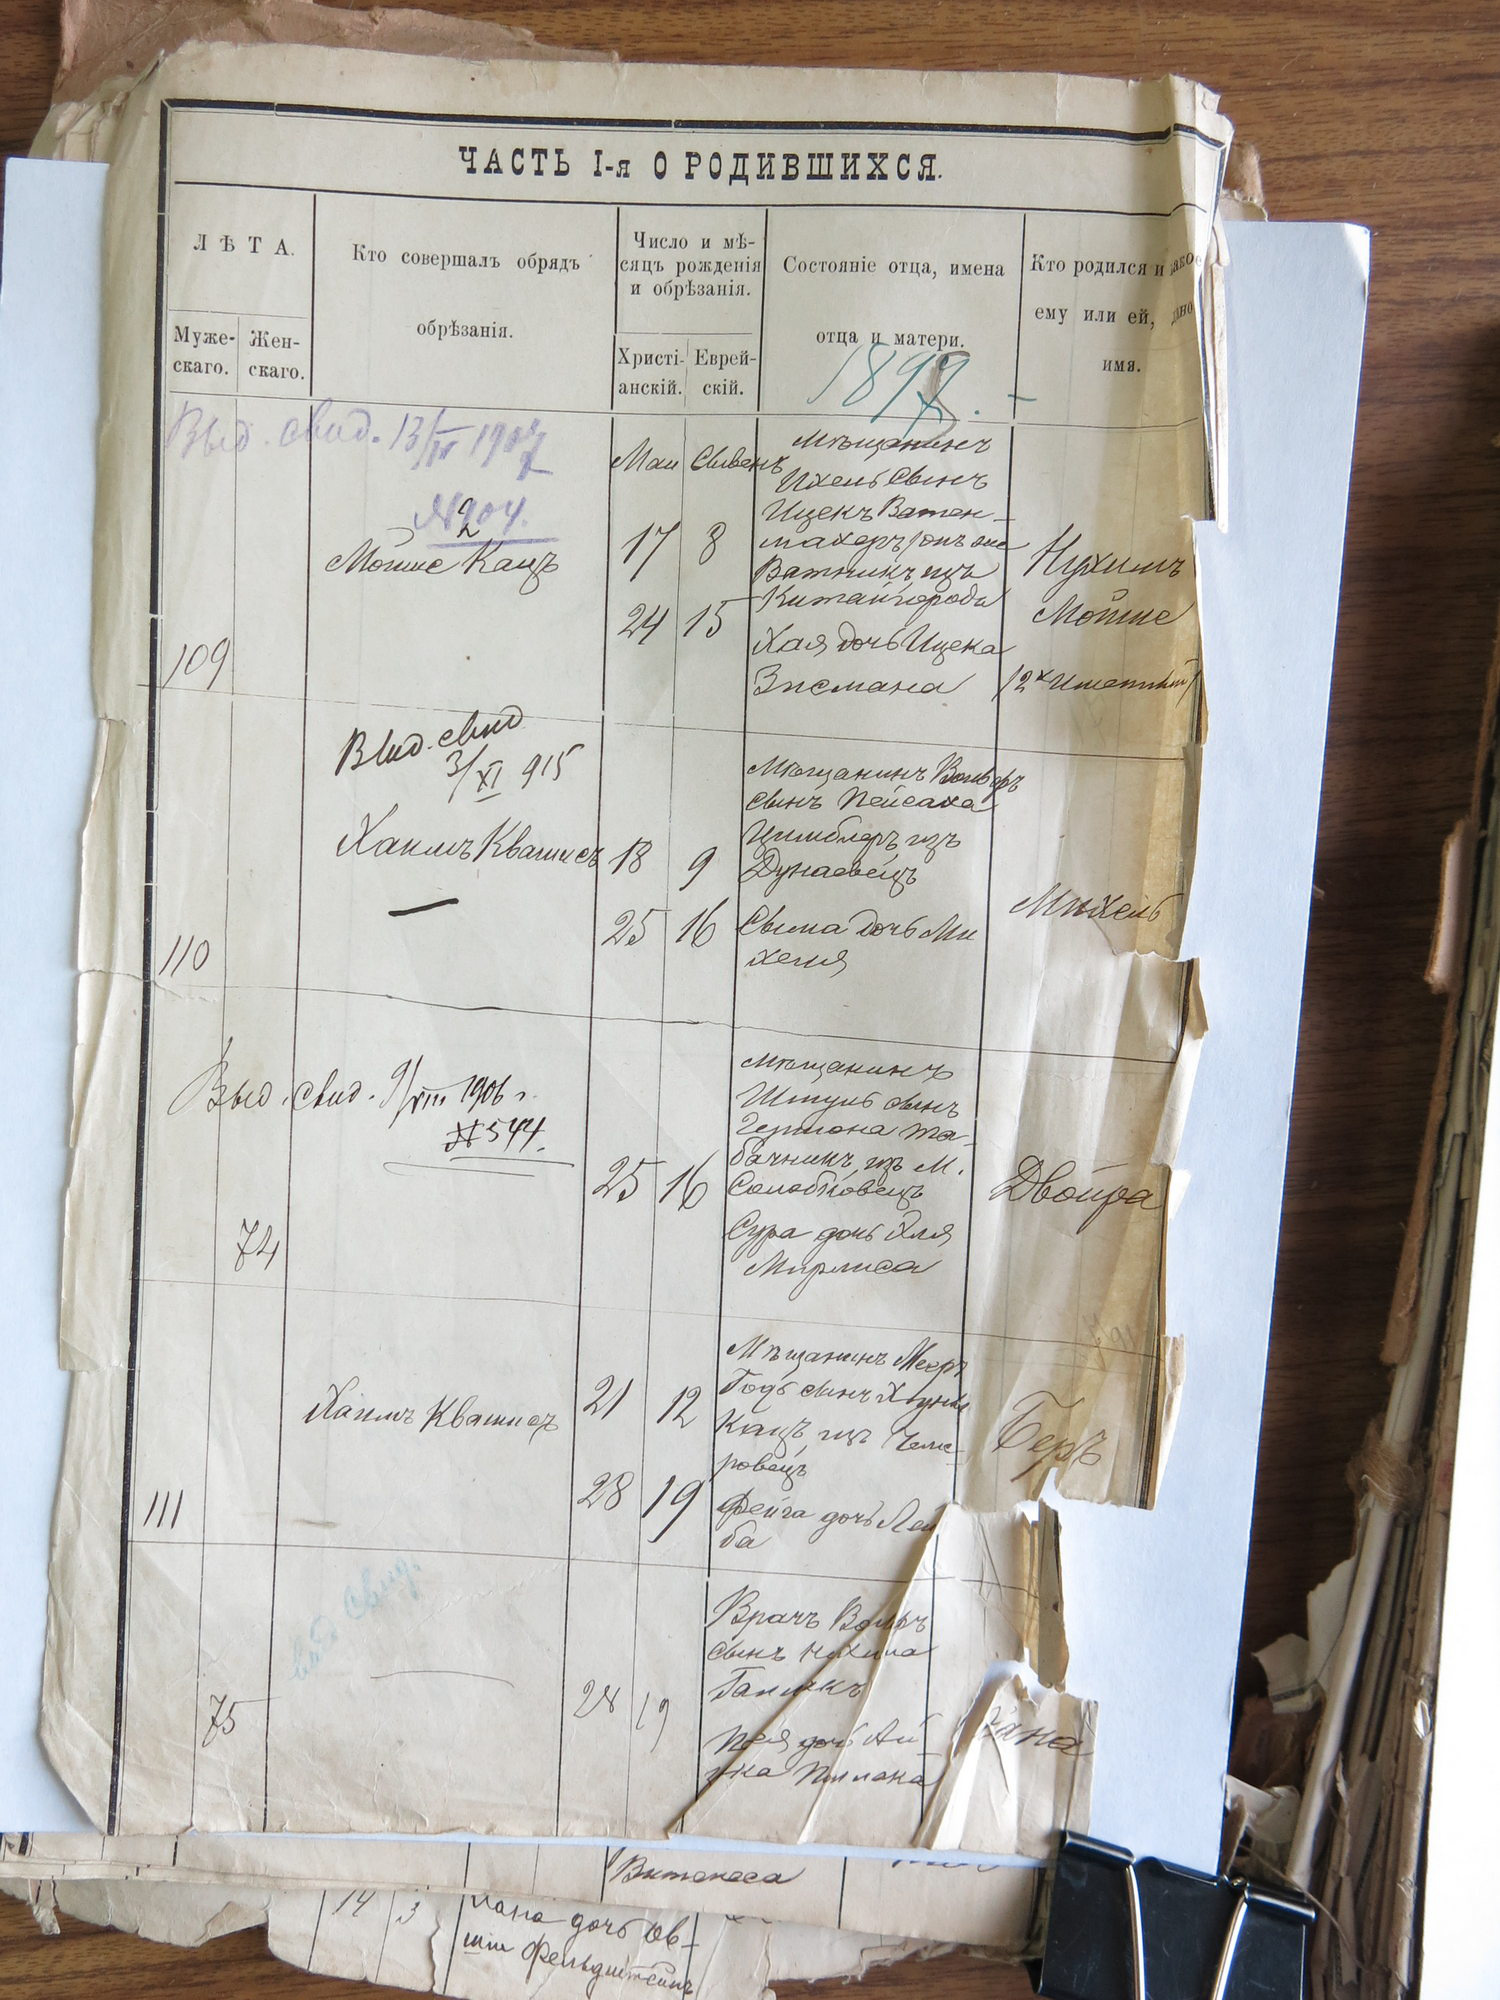 ЧАСТЬ I-я О РОДИВШИХСЯ.
ЛѢТА.
Муже-
скаго.
Жен-
скаго.
Кто совершалъ обрядъ
обрѣзанія.
Число и мѣ-
сяцъ рожденія
и обрѣзанія.
Христі-
анскій.
Еврей-
скій.
Состояніе отца, имена
отца и матери.
Кто родился и какое
ему или ей, дано
имя.
1897. -
Выд. свид. 13/IV 1907
№ 204.
Мойше Кацъ
109
Маи
17
24
Сывенъ
8
15
Мѣщанинъ
Ихель сынъ
Ицекъ Ватен-
махеръ, онъ же
Ватникъ изъ
Китайгорода
Хая дочь Ицека
Зисмана
Нухимъ
Мойше
Выд. свид
3/XI 915
Хаимъ Квашисъ
110
18
25
9
16
Мѣщанинъ Вольфъ
сынъ Пейсаха
Цимблеръ изъ
Дунаевецъ
Сыма дочь Ми
хеля
Михель
Выд. свид. 9/VIII 1906 г.
№ 544.
74
25
16
Мѣщанинъ
Шмуль сынъ
Гершона Та-
бачникъ, изъ м.
Солобковецъ
Сура дочь Эля
Мирмиса
Двойра
Хаимъ Квашисъ
111
21
28
12
19
Мѣщанинъ Мееръ
Годъ сынъ
Кацъ изъ Чеме-
ровецъ
Фейга дочь Лей
ба
Беръ
выд. свид.
75
28
19
Врачъ Вольфъ
сынъ Нахима
дочь
Хана
14
3
дочь Ов-
Фельдштейнъ